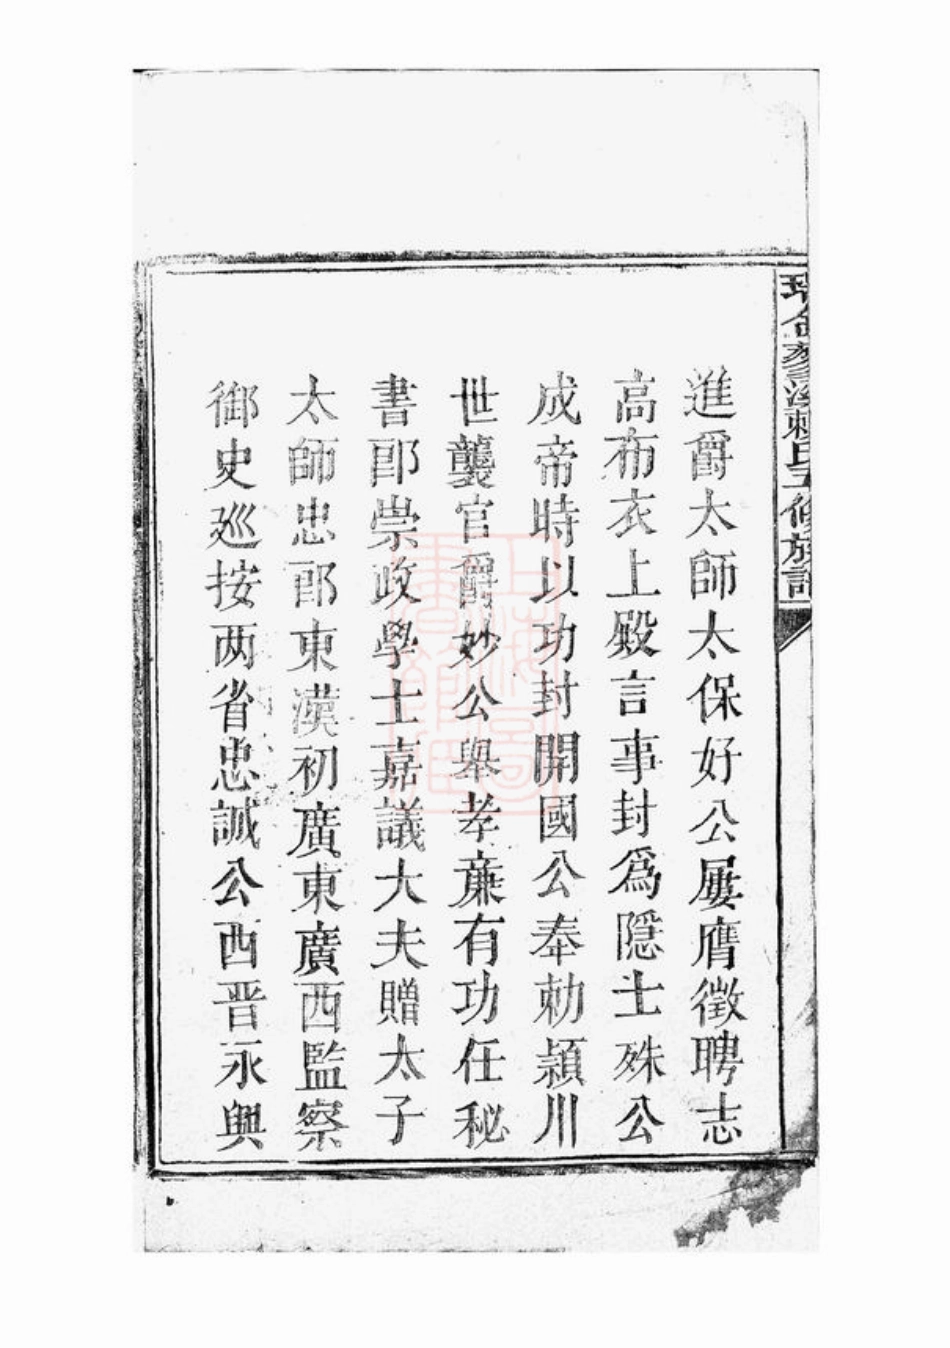 瑞金𦯀溪賴氏五修族譜
進爵太師太保好公屢膺徵聘志
高布衣上殿言事封爲隱士殊公
成帝時以功封開國公奉勅頴川
世襲官爵妙公舉孝亷有功任秘
書郎崇政學士嘉議大夫贈太子
太師忠郎東漢初廣東廣西監察
御史廵按两省忠誠公西晋永興